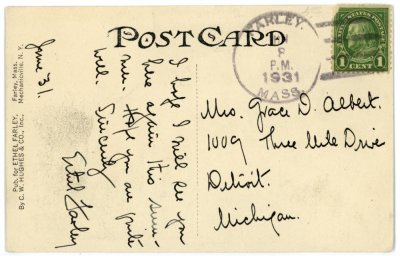 POST CARD
FARLEY.
P.M.
1931
MASS.
1 CENT 1
June 31.
I hope I will see you
here again this sum-
mer. Hope you are quite
well.
Sincerely
Ethel Farley
Mrs. Grace D. Albert.
1009 Three Mile Drive
Detroit.
Michigan.
Pub. for ETHEL FARLEY, Farley, Mass.
By C. W. HUGHES & CO., Inc., Mechanicville, N. Y.